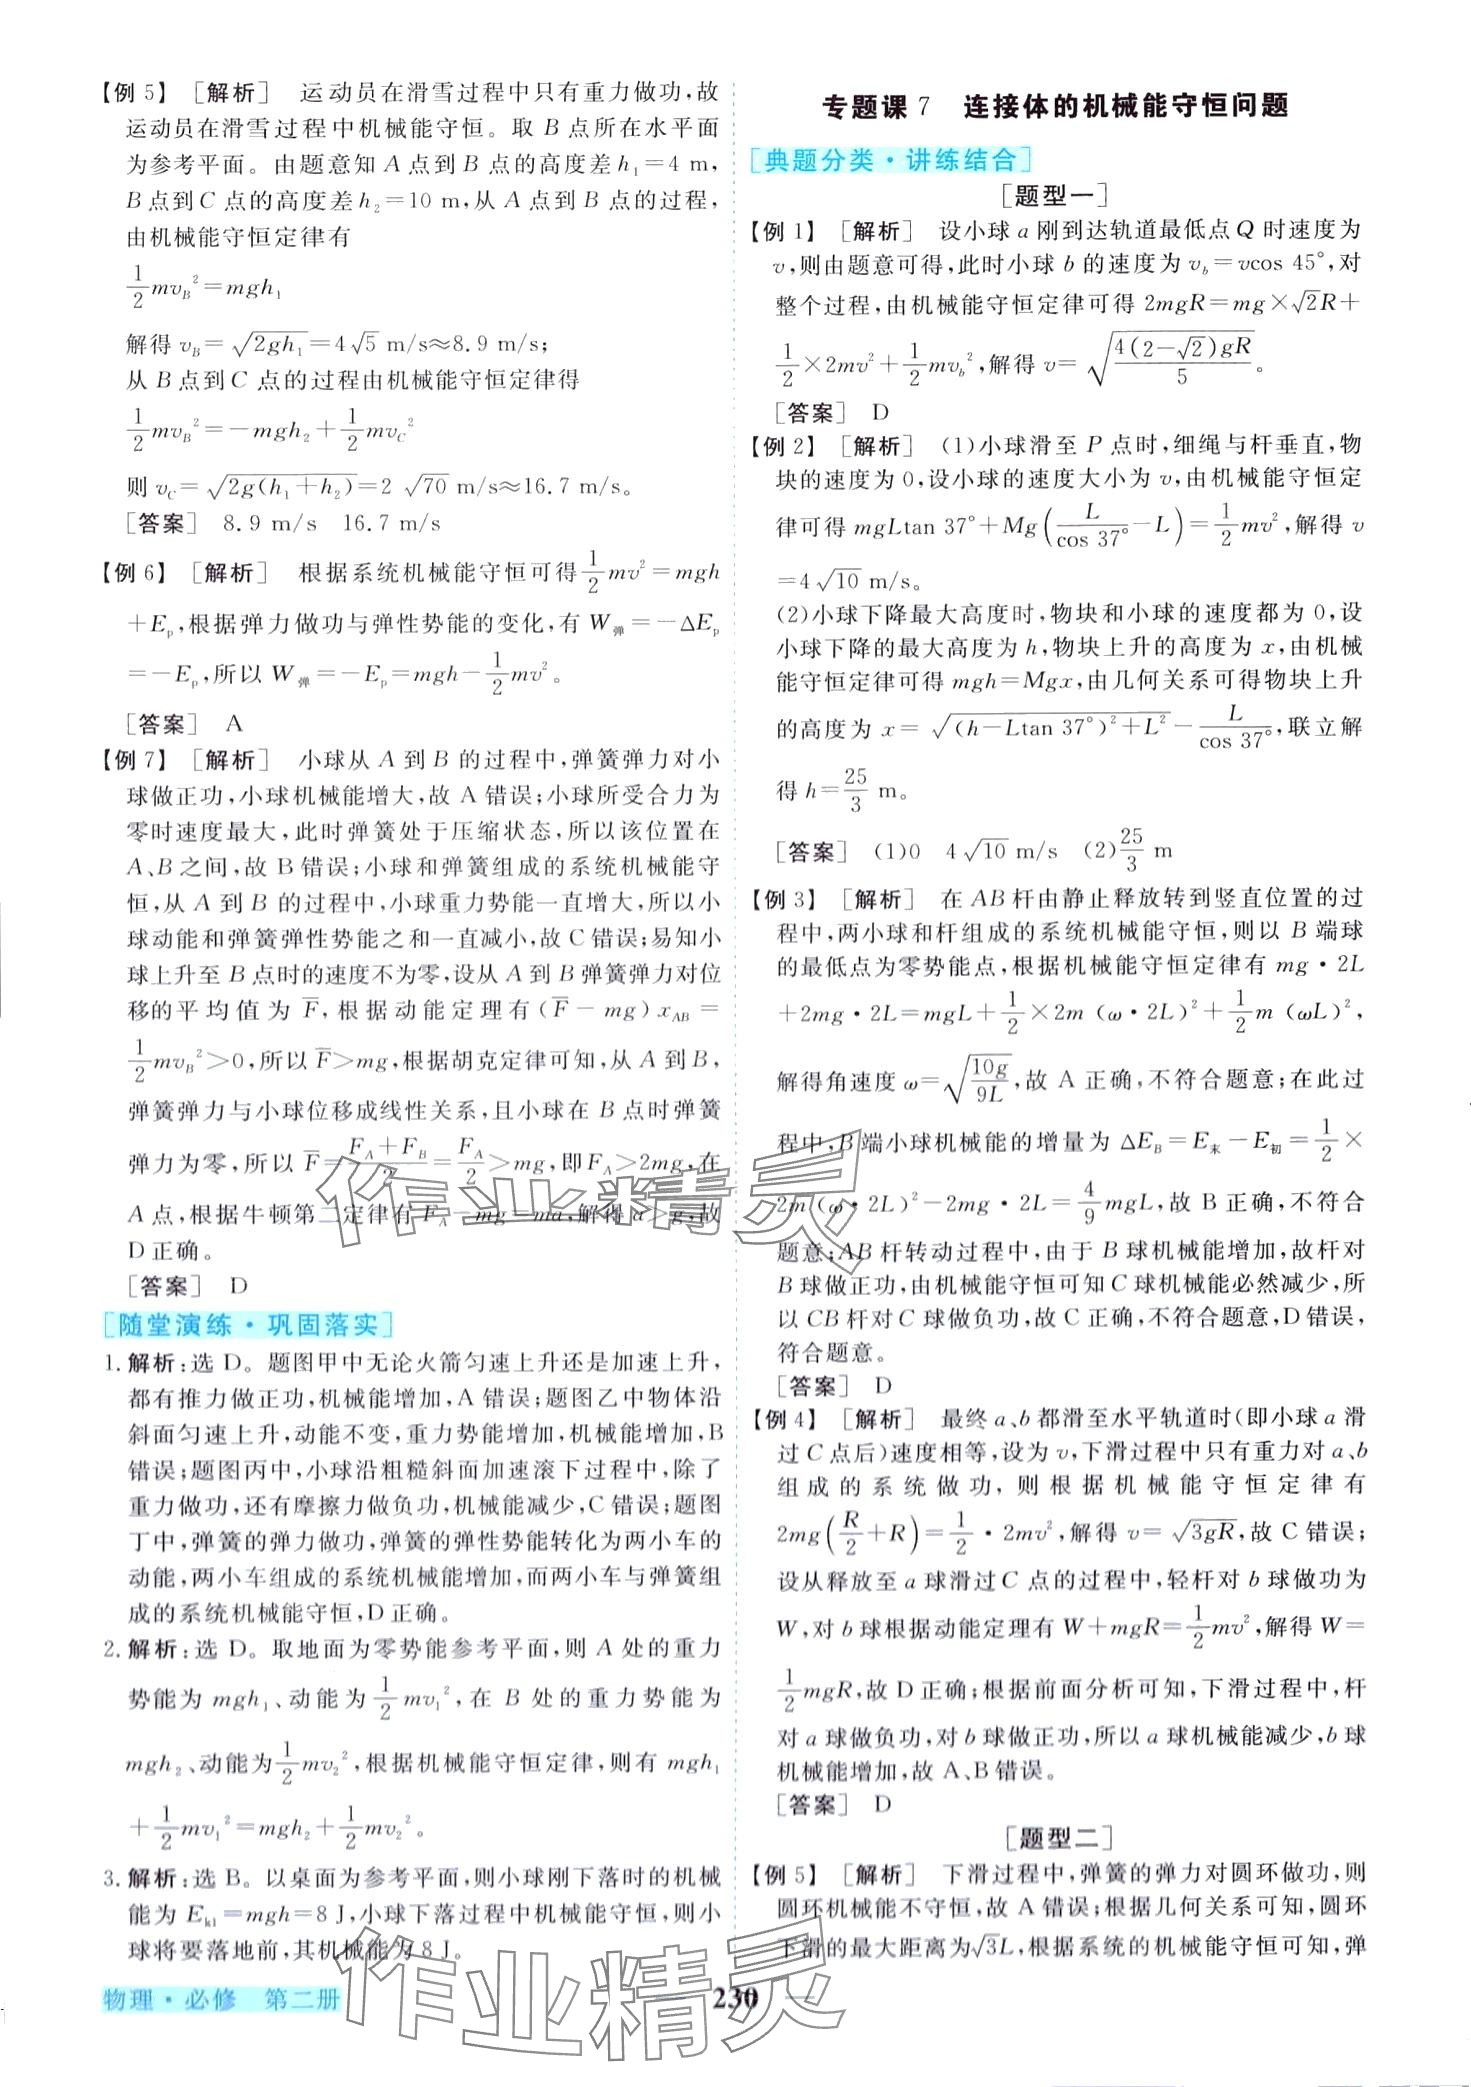 【例5】 [解析] 运动员在滑雪过程中只有重力做功,故
运动员在滑雪过程中机械能守恒。取 B 点所在水平面
为参考平面。由题意知 A 点到 B 点的高度差 h₁=4 m,
B 点到 C 点的高度差 h₂=10 m,从 A 点到 B 点的过程,
由机械能守恒定律有
1/2 mv_B²=mgh₁
解得 v_B=√(2gh₁)=4√5 m/s≈8.9 m/s;
从 B 点到 C 点的过程由机械能守恒定律得
1/2 mv_B²=-mgh₂+1/2 mv_C²
则 v_C=√(2g(h₁+h₂))=2√70 m/s≈16.7 m/s。
[答案] 8.9 m/s 16.7 m/s
【例6】 [解析] 根据系统机械能守恒可得 1/2 mv²=mgh
+E_p,根据弹力做功与弹性势能的变化,有 W_弹=-ΔE_p
=-E_p,所以 W_弹=-E_p=mgh-1/2 mv²。
[答案] A
【例7】 [解析] 小球从 A 到 B 的过程中,弹簧弹力对小
球做正功,小球机械能增大,故 A 错误;小球所受合力为
零时速度最大,此时弹簧处于压缩状态,所以该位置在
A、B 之间,故 B 错误;小球和弹簧组成的系统机械能守
恒,从 A 到 B 的过程中,小球重力势能一直增大,所以小
球动能和弹簧弹性势能之和一直减小,故 C 错误;易知小
球上升至 B 点时的速度不为零,设从 A 到 B 弹簧弹力对位
移的平均值为 F̄,根据动能定理有(F̄-mg)x_AB=
1/2 mv_B²>0,所以 F̄>mg,根据胡克定律可知,从 A 到 B,
弹簧弹力与小球位移成线性关系,且小球在 B 点时弹簧
弹力为零,所以 F̄=(F_A+F_B)/2=F_A/2>mg,即 F_A>2mg,在
A 点,根据牛顿第二定律有 F_A-mg=ma,解得 a>g,故
D 正确。
[答案] D
[随堂演练·巩固落实]
1. 解析:选 D。题图甲中无论火箭匀速上升还是加速上升,
都有推力做正功,机械能增加,A 错误;题图乙中物体沿
斜面匀速上升,动能不变,重力势能增加,机械能增加,B
错误;题图丙中,小球沿粗糙斜面加速滚下过程中,除了
重力做功,还有摩擦力做负功,机械能减少,C 错误;题图
丁中,弹簧的弹力做功,弹簧的弹性势能转化为两小车的
动能,两小车组成的系统机械能增加,而两小车与弹簧组
成的系统机械能守恒,D 正确。
2. 解析:选 D。取地面为零势能参考平面,则 A 处的重力
势能为 mgh₁、动能为 1/2 mv₁²,在 B 处的重力势能为
mgh₂、动能为 1/2 mv₂²,根据机械能守恒定律,则有 mgh₁
+1/2 mv₁²=mgh₂+1/2 mv₂²。
3. 解析:选 B。以桌面为参考平面,则小球刚下落时的机械
能为 E_k1=mgh=8 J,小球下落过程中机械能守恒,则小
球将要落地前,其机械能为 8 J。
专题课7 连接体的机械能守恒问题
[典题分类·讲练结合]
[题型一]
【例1】 [解析] 设小球 a 刚到达轨道最低点 Q 时速度为
v,则由题意可得,此时小球 b 的速度为 v_b=vcos 45°,对
整个过程,由机械能守恒定律可得 2mgR=mg×√2R+
1/2×2mv²+1/2 mv_b²,解得 v=√(4(2-√2)gR/5)。
[答案] D
【例2】 [解析] (1)小球滑至 P 点时,细绳与杆垂直,物
块的速度为 0,设小球的速度大小为 v,由机械能守恒定
律可得 mgLtan 37°+Mg(L/cos 37°-L)=1/2 mv²,解得 v
=4√10 m/s。
(2)小球下降最大高度时,物块和小球的速度都为 0,设
小球下降的最大高度为 h,物块上升的高度为 x,由机械
能守恒定律可得 mgh=Mgx,由几何关系可得物块上升
的高度为 x=√((h-Ltan 37°)²+L²)-L/cos 37°,联立解
得 h=25/3 m。
[答案] (1)0 4√10 m/s (2)25/3 m
【例3】 [解析] 在 AB 杆由静止释放转到竖直位置的过
程中,两小球和杆组成的系统机械能守恒,则以 B 端球
的最低点为零势能点,根据机械能守恒定律有 mg·2L
+2mg·2L=mgL+1/2×2m(ω·2L)²+1/2 m(ωL)²,
解得角速度 ω=√(10g/9L),故 A 正确,不符合题意;在此过
程中,B 端小球机械能的增量为 ΔE_B=E_末-E_初=1/2×
2m(ω·2L)²-2mg·2L=4/9 mgL,故 B 正确,不符合
题意;AB 杆转动过程中,由于 B 球机械能增加,故杆对
B 球做正功,由机械能守恒可知 C 球机械能必然减少,所
以 CB 杆对 C 球做负功,故 C 正确,不符合题意,D 错误,
符合题意。
[答案] D
【例4】 [解析] 最终 a、b 都滑至水平轨道时(即小球 a 滑
过 C 点后)速度相等,设为 v,下滑过程中只有重力对 a、b
组成的系统做功,则根据机械能守恒定律有
2mg(R/2+R)=1/2·2mv²,解得 v=√(3gR),故 C 错误;
设从释放至 a 球滑过 C 点的过程中,轻杆对 b 球做功为
W,对 b 球根据动能定理有 W+mgR=1/2 mv²,解得 W=
1/2 mgR,故 D 正确;根据前面分析可知,下滑过程中,杆
对 a 球做负功,对 b 球做正功,所以 a 球机械能减少,b 球
机械能增加,故 A、B 错误。
[答案] D
[题型二]
【例5】 [解析] 下滑过程中,弹簧的弹力对圆环做功,则
圆环机械能不守恒,故 A 错误;根据几何关系可知,圆环
下滑的最大距离为√3L,根据系统的机械能守恒可知,弹
物理·必修 第二册
230
作业精灵
作业精灵